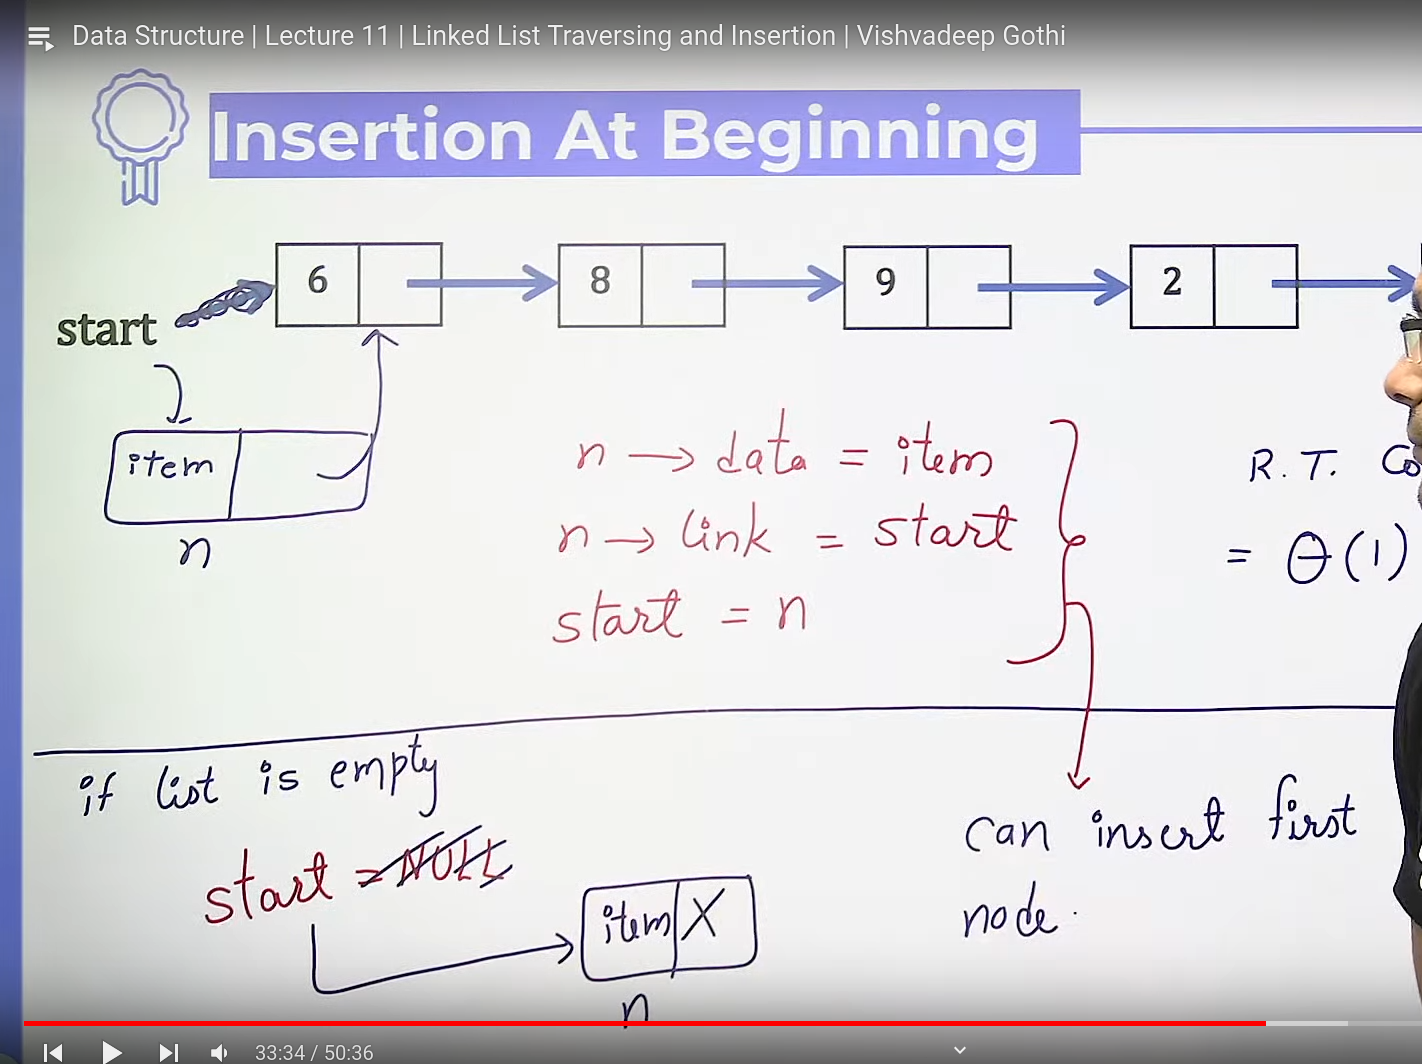 Data Structure | Lecture 11 | Linked List Traversing and Insertion | Vishvadeep Gothi
Insertion At Beginning
6 8 9 2
start
item
n
n → data = item
n → link = start
start = n
R.T.
= θ(1)
if list is empty
start = NULL
item X
n
can insert first
node.
33:34 / 50:36